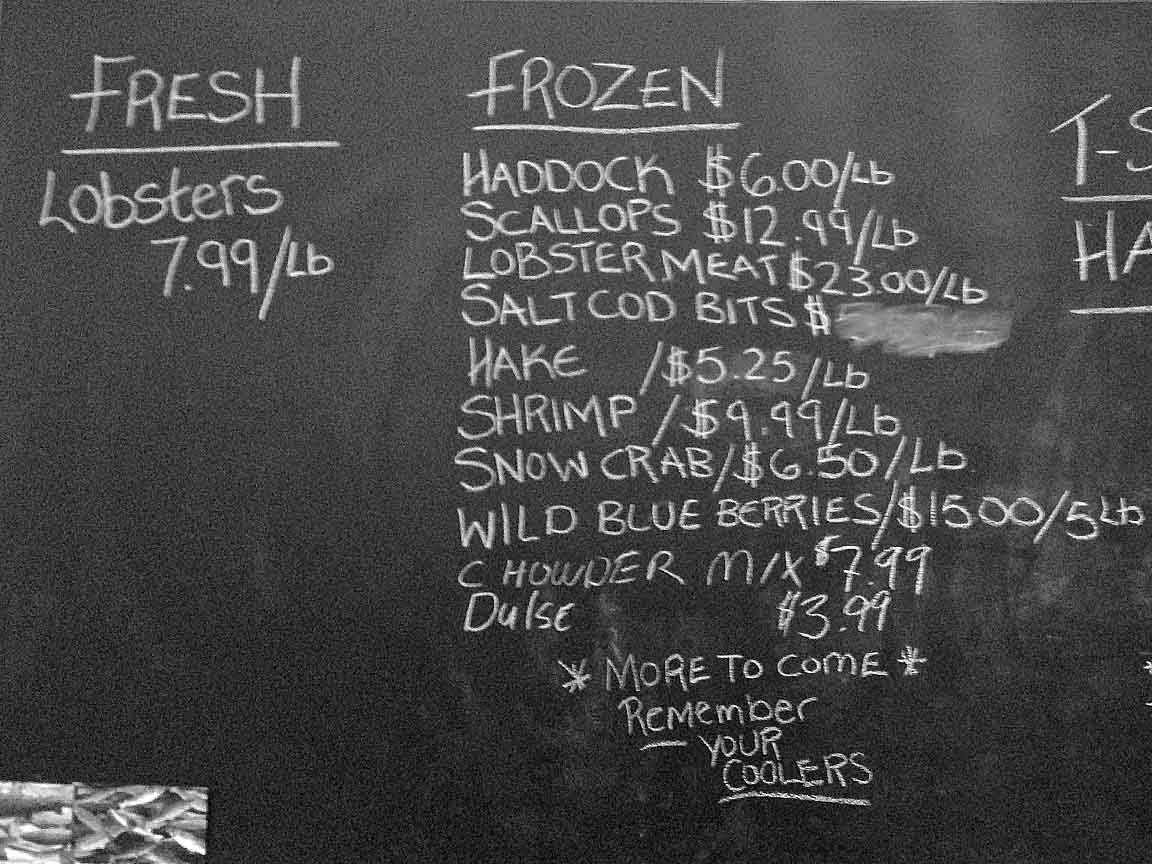 FRESH
Lobsters
7.99/Lb
FROZEN
HADDOCK $6.00/Lb
SCALLOPS $12.99/Lb
LOBSTER MEAT $23.00/Lb
SALT COD BITS $
HAKE /$5.25/Lb
SHRIMP /$9.99/Lb
SNOW CRAB/$6.50/Lb
WILD BLUE BERRIES/$15.00/5Lb
CHOWDER MIX $7.99
Dulse $3.99
* MORE TO COME *
Remember
YOUR
COOLERS
T-S
HA